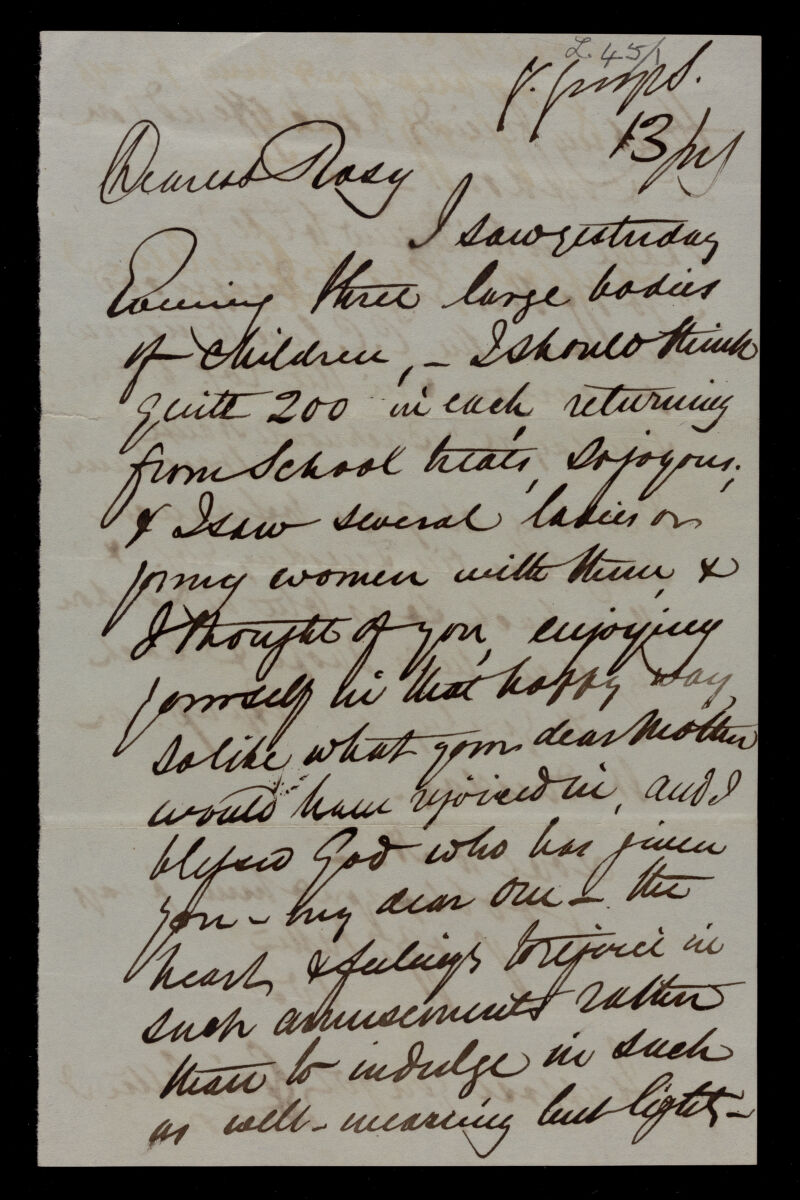 L. 45/1
13/
Dearest Rosy
I saw yesterday
Evening three large bodies
of children, - I should think
quite 200 in each, returning
from School treats, so joyous;
& I saw several ladies or
young women with them, &
I thought of you, enjoying
yourself in that happy way,
so like what your dear Mother
would have rejoiced in, and I
blessed God who has given
you - my dear One - the
heart, & feelings to rejoice in
such amusements rather
than to indulge in such
as well-meaning but light-